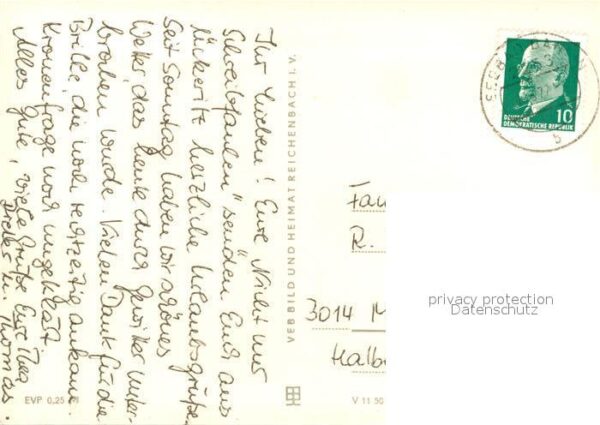 Ihr Lieben! Eure Nicht nur
Schreibfaulen" senden Euch aus
Ückeritz herzliche Urlaubsgrüße.
Seit Sonntag haben wir schönes
Wetter, das heute durch Gewitter unter-
brochen wurde. Vielen Dank für die
Brille, die noch rechtzeitig ankam.
Kronenfrage noch ungeklärt.
Alles Gute, viele Grüße Eure Thea
Thomas.
VEB BILD UND HEIMAT REICHENBACH I. V.
EVP 0,25
V 11 50
DEUTSCHE
DEMOKRATISCHE REPUBLIK
10
Fa
R.
3014 M
Halb
privacy protection
Datenschutz